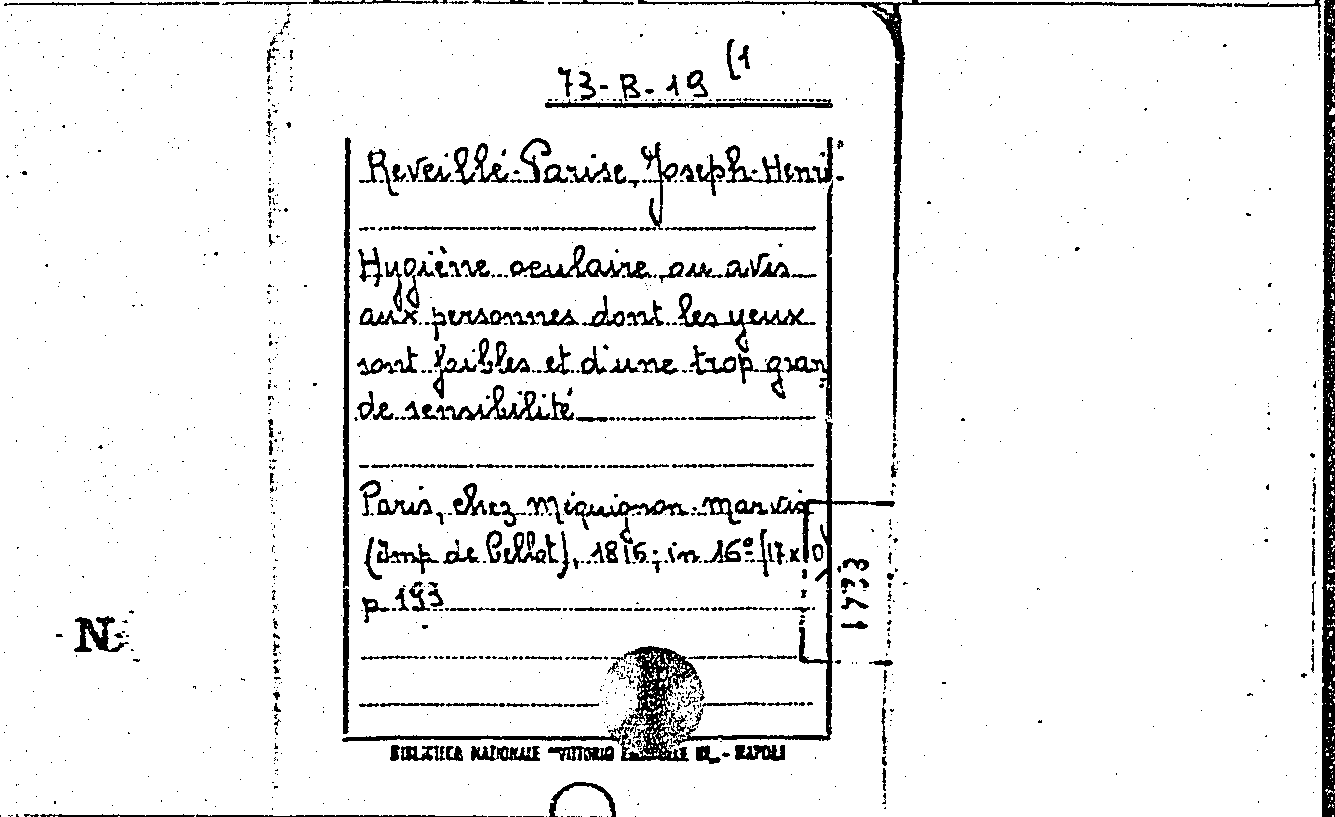 73-B-19 (1
Reveillé-Parise, Joseph-Henri.
Hygiène oculaire, ou avis
aux personnes dont les yeux
sont faibles et d'une trop gran
de sensibilité
Paris, chez Miquignon-Marvis
(Imp de Cellot), 1816; in 16º (17x10)
p 193
1733
N
NAZIONALE "VITTORIO EMANUELE III" - NAPOLI